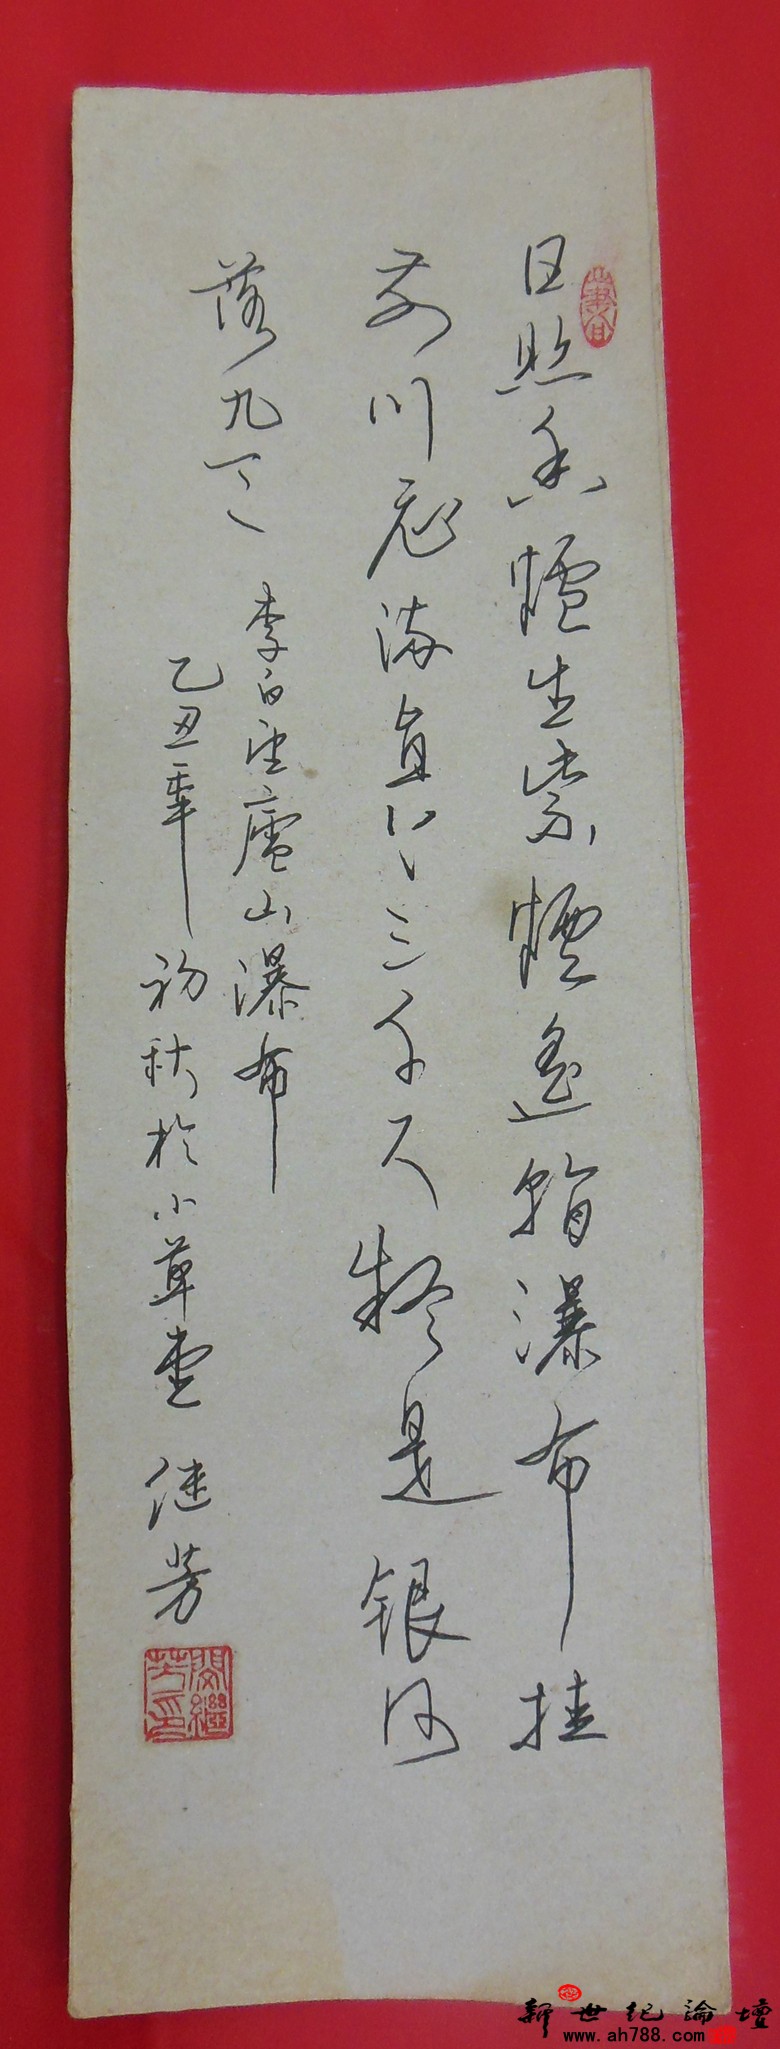 日照香爐生紫煙遙看瀑布挂
前川飛流直下三千尺疑是銀河
落九天
李白望廬山瀑布
乙丑年初秋於小草堂 继芳
閔繼芳印
新世纪論壇
www.ah788.com